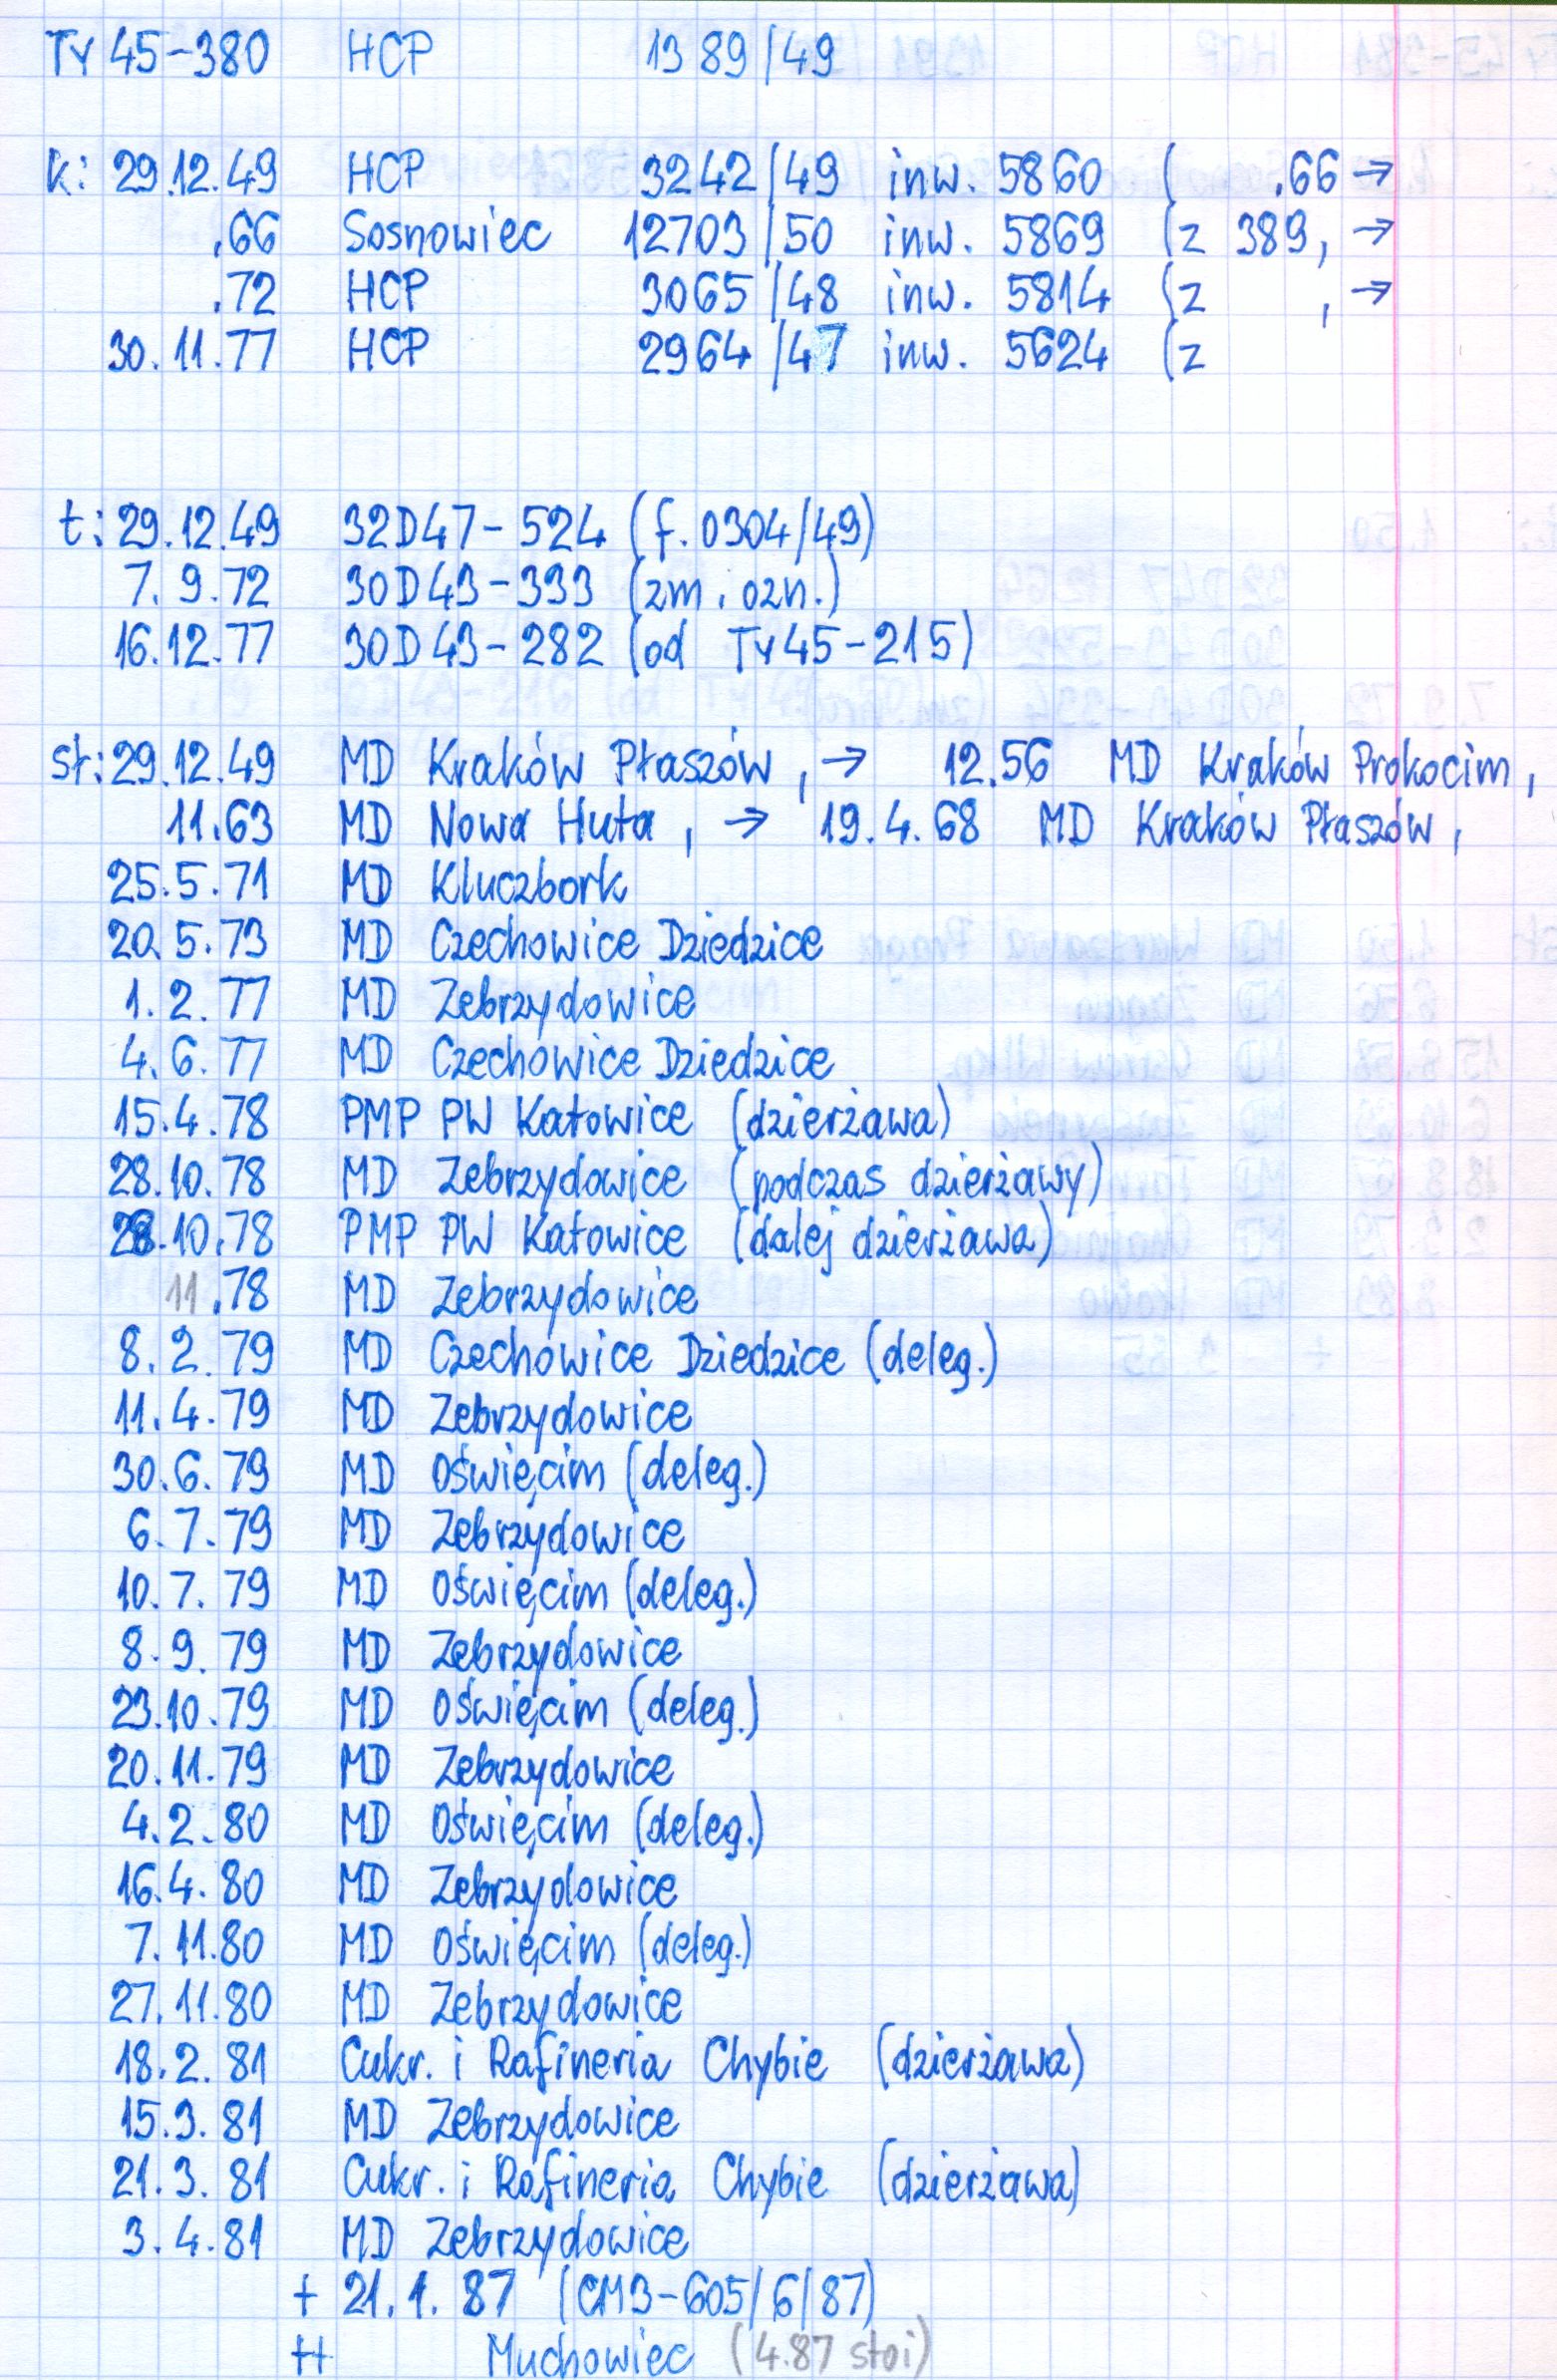 Ty 45-380 HCP 1389/49
k: 29.12.49 HCP 3242/49 inw. 5860 ( .66 →
.66 Sosnowiec 12703/50 inw. 5869 (z 389, →
.72 HCP 3065/48 inw. 5814 (z , →
30.11.77 HCP 2964/47 inw. 5624 (z
t: 29.12.49 32D47-524 (f. 0304/49)
7.9.72 30D43-333 (zm. ozn.)
16.12.77 30D43-282 (od Ty45-215)
st: 29.12.49 MD Kraków Płaszów, → 12.56 MD Kraków Prokocim,
11.63 MD Nowa Huta, → 19.4.68 MD Kraków Płaszów,
25.5.71 MD Kluczbork
20.5.73 MD Czechowice Dziedzice
1.2.77 MD Zebrzydowice
4.6.77 MD Czechowice Dziedzice
15.4.78 PMP PW Katowice (dzierżawa)
28.10.78 MD Zebrzydowice (podczas dzierżawy)
28.10.78 PMP PW Katowice (dalej dzierżawa)
11.78 MD Zebrzydowice
8.2.79 MD Czechowice Dziedzice (deleg.)
11.4.79 MD Zebrzydowice
30.6.79 MD Oświęcim (deleg.)
6.7.79 MD Zebrzydowice
10.7.79 MD Oświęcim (deleg.)
8.9.79 MD Zebrzydowice
23.10.79 MD Oświęcim (deleg.)
20.11.79 MD Zebrzydowice
4.2.80 MD Oświęcim (deleg.)
16.4.80 MD Zebrzydowice
7.11.80 MD Oświęcim (deleg.)
27.11.80 MD Zebrzydowice
18.2.81 Cukr. i Rafineria Chybie (dzierżawa)
15.3.81 MD Zebrzydowice
21.3.81 Cukr. i Rafineria Chybie (dzierżawa)
3.4.81 MD Zebrzydowice
+ 21.1.87 (CM3-605/6/87)
++ Muchowiec (4.87 stoi)